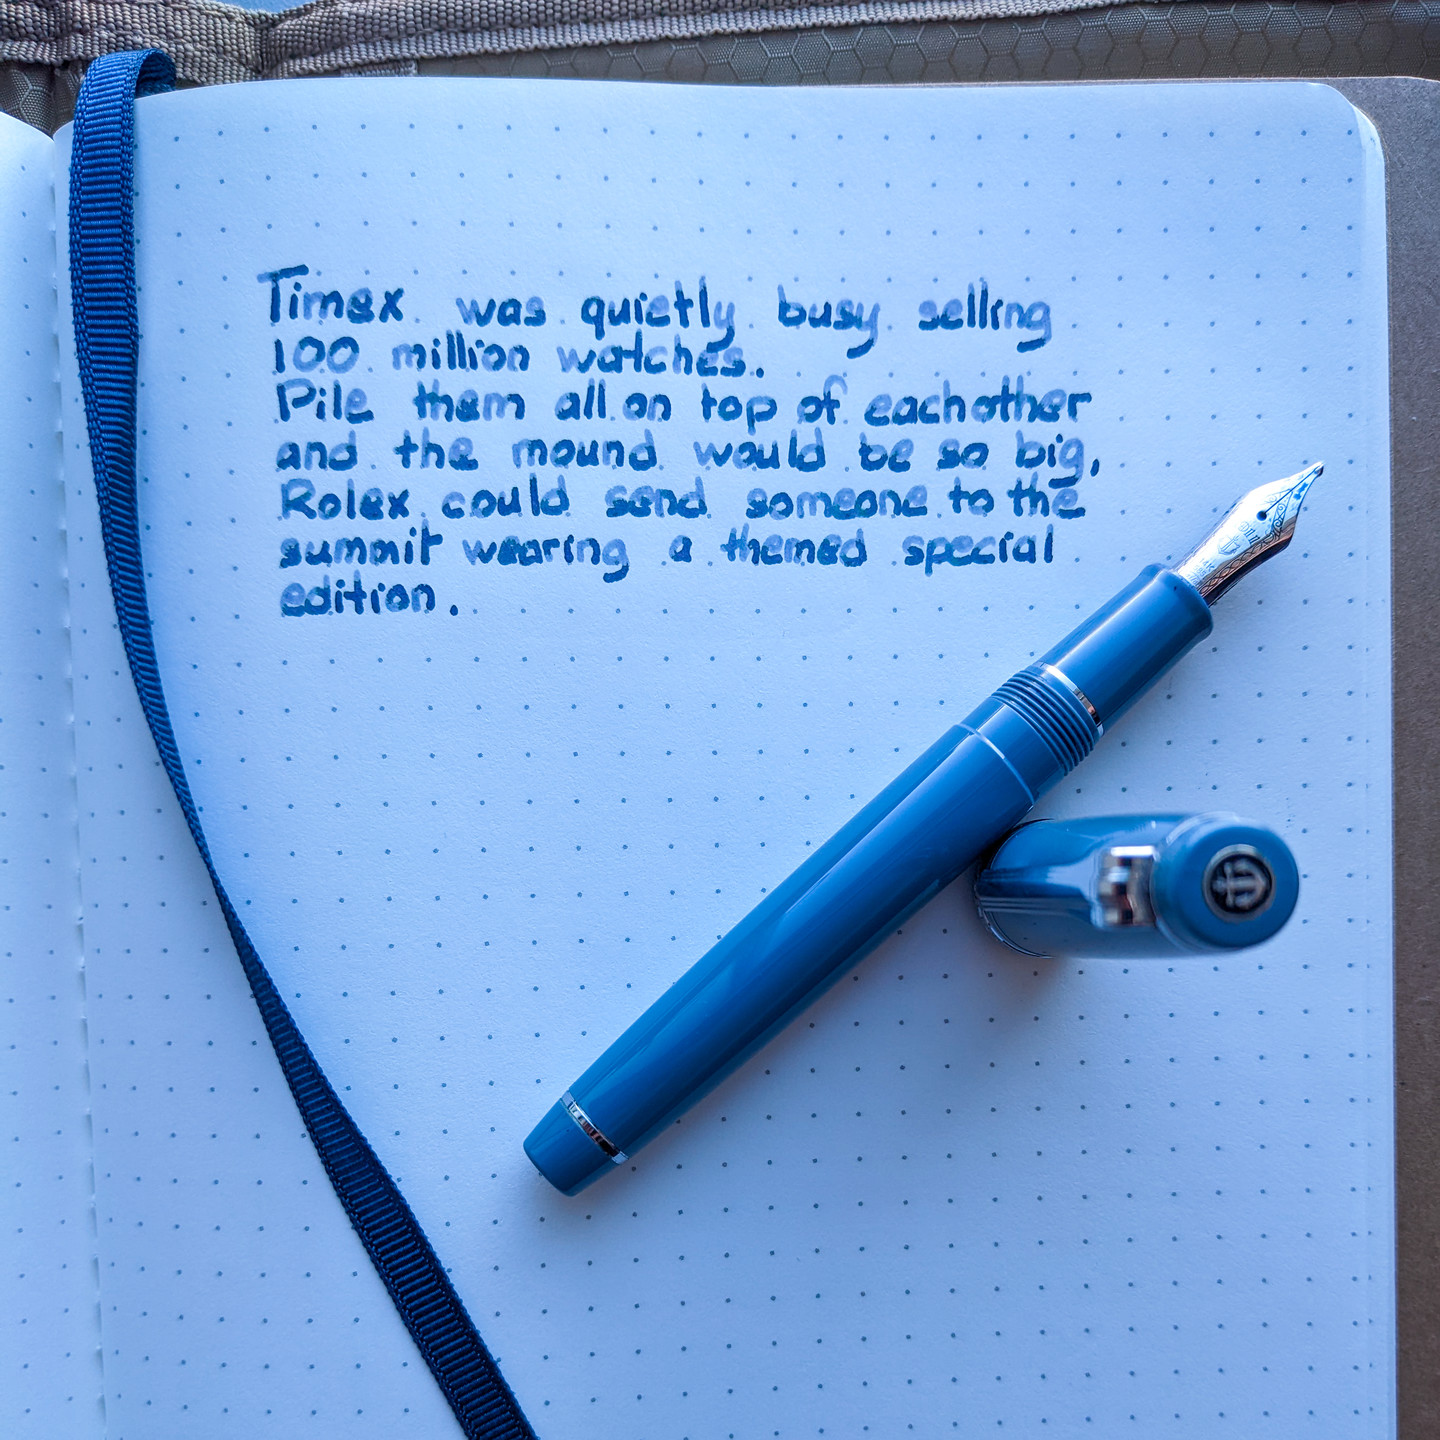 Timex was quietly busy selling
100 million watches.
Pile them all on top of eachother
and the mound would be so big,
Rolex could send someone to the
summit wearing a themed special
edition.